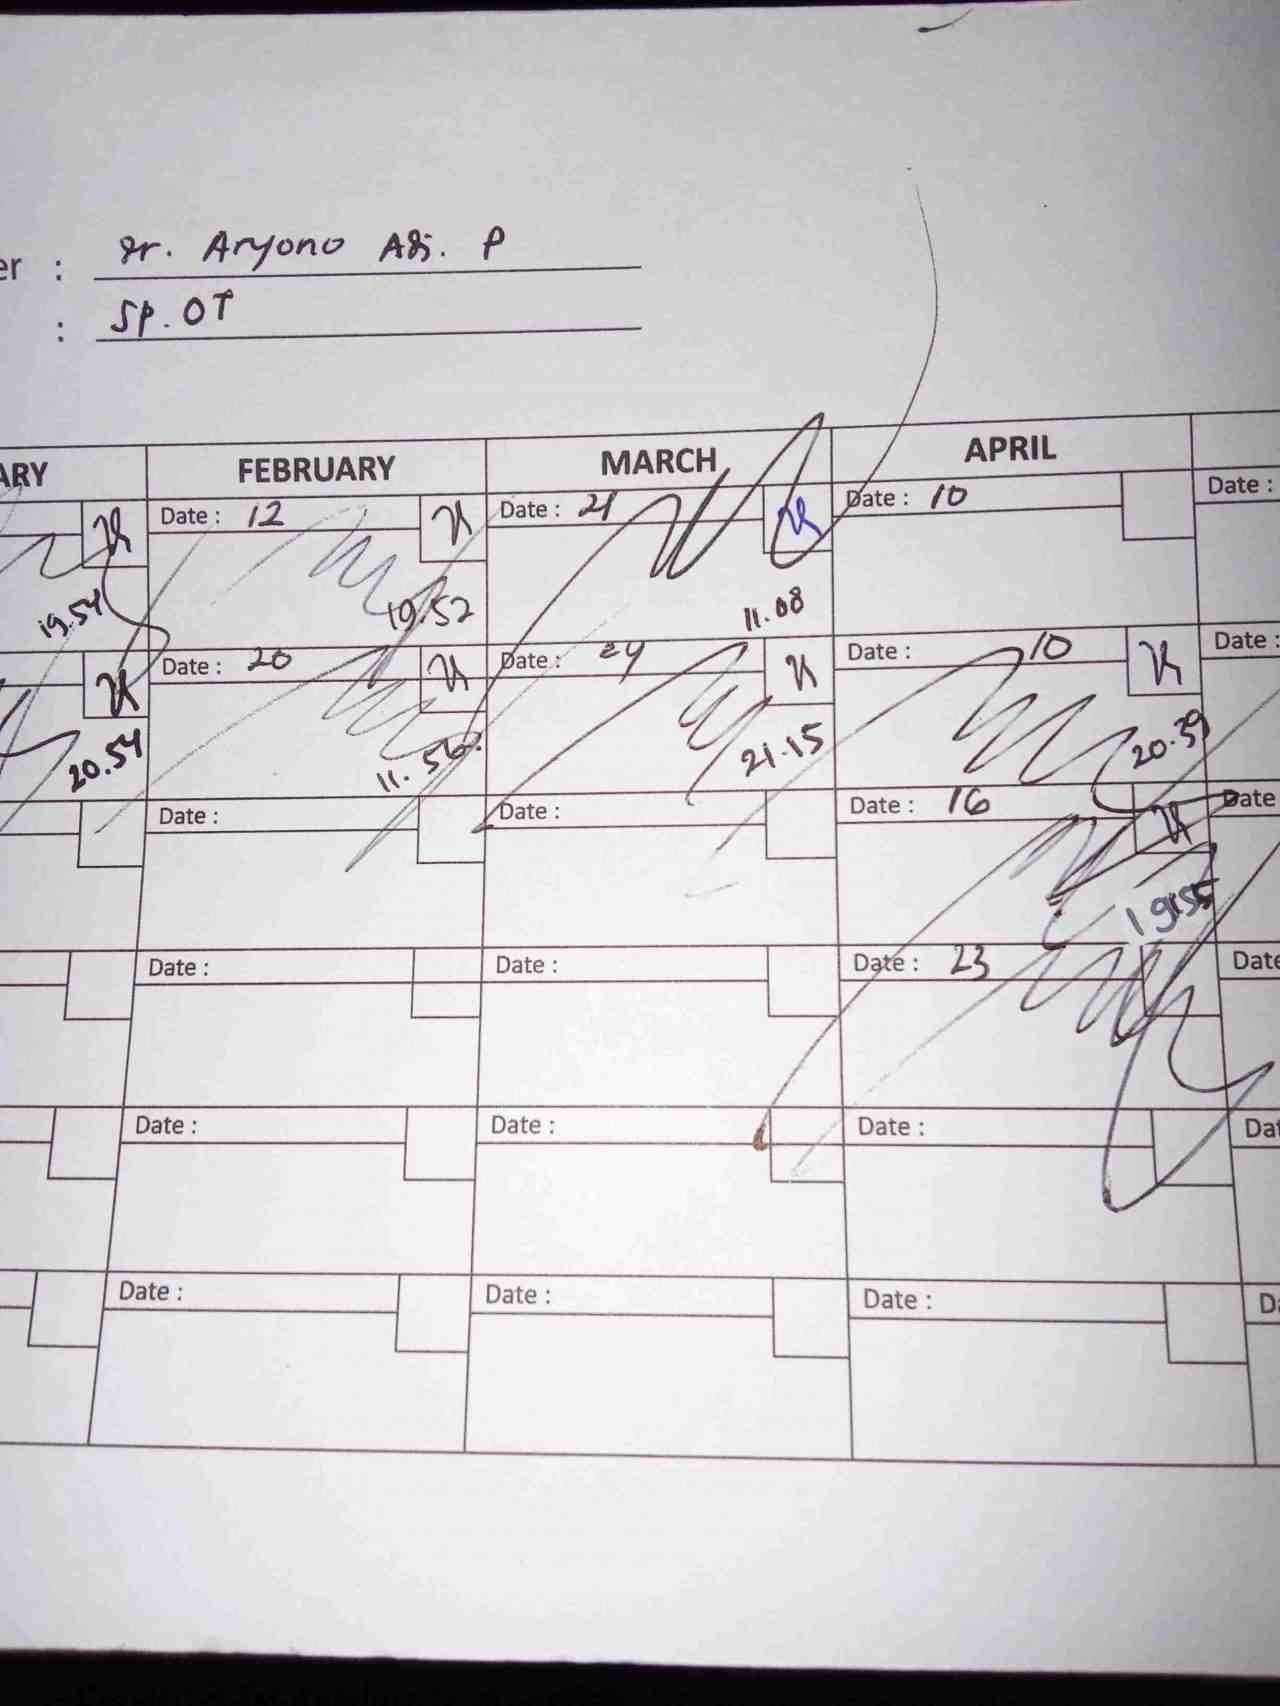 er : dr. Aryono Adj. P
: Sp. OT
ARY FEBRUARY MARCH APRIL
Date : 12 Date : 21 Date : 10 Date :
19.54 19.52 11.08
Date : 20 Date : 24 Date : 10 Date :
20.54 11.56 21.15 20.39
Date : Date : Date : 16 Date
19.55
Date : Date : Date : 23 Date
Date : Date : Date : Dat
Date : Date : Date : Da